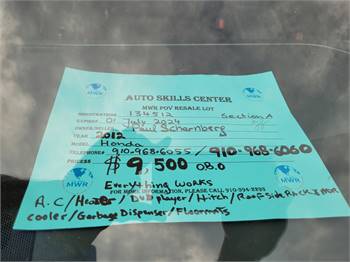 AUTO SKILLS CENTER
MWR POV RESALE LOT
REGISTRATION 134512 Section A
EXPIRES 01 July 2024
OWNER/SELLER Paul Scharnberg
YEAR 2012
MODEL Honda
TELEPHONE# 910-968-6055 / 910-968-6060
PRICE $ $ 9,500 O.B.O
Everything Works
FOR MORE INFORMATION, PLEASE CALL 910-394-
A.C / Heater / DVD player / Hitch / Roof Side Rack
cooler / Garbage Dispenser / Floormats
MWR
MWR
MWR
MWR